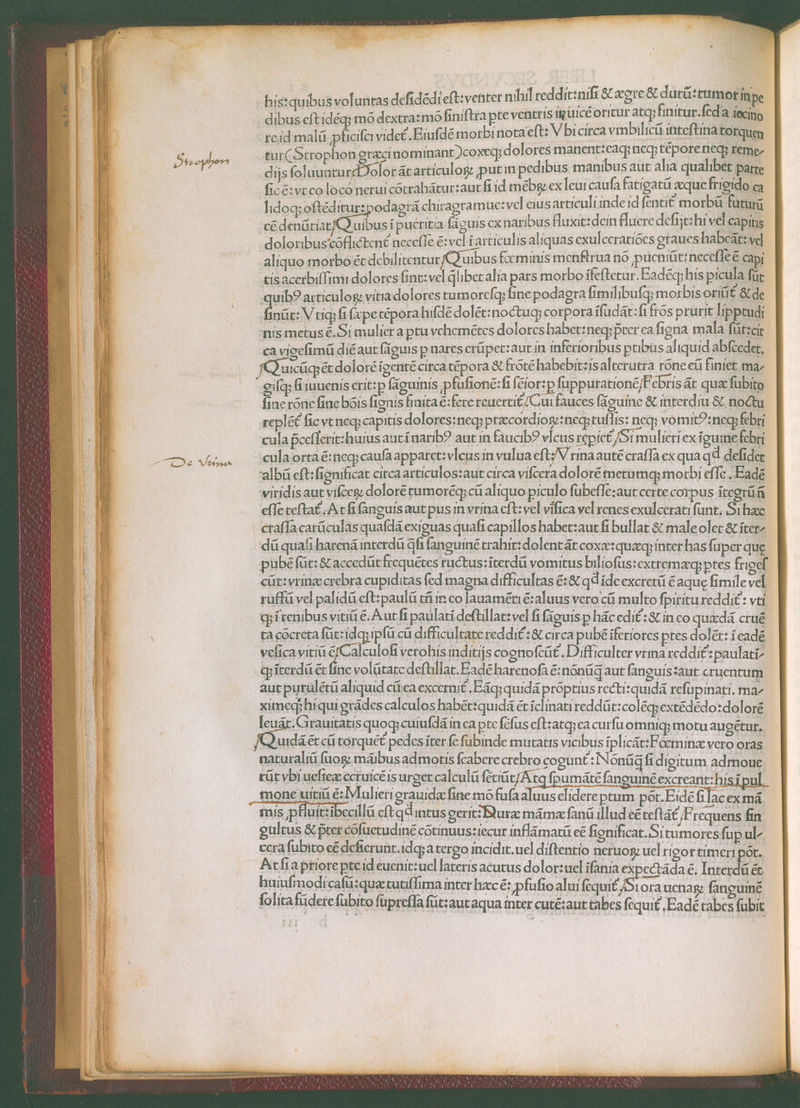 his:quibus voluntas desidēdi est:venter nihil reddit:nisi & ægre & durū:tumor in pe
dibus est idēq; mō dextra:mō sinistra pte ventris iuicē oritur atq; finitur.sed a iocino
re id malū pficisci videť.Eiusdē morbi nota est: Vbi circa vmbilicū intestina torquen
tur(Strophon græci nominant)coxeq; dolores manent:eaq; neq; tēpore neq; reme-
Strophon
dijs soluuntur:Dolor āt articuloꝝ put in pedibus manibus aut alia qualibet parte
sic ē:vt eo loco nerui cōtrahātur:aut si id mēbꝝ ex leui causa fatigatū æque frigido ca
lidoq; ostēditur:podagrā chiragramue:vel eius articuli inde id sentiť morbū futurū
eē denūtiat/Quibus ī pueritia sāguis ex naribus fluxit:dein fluere desijt:hi vel capitis
doloribus cōflictenť necesse ē:vel ī articulis aliquas exulceratiōes graues habeāt:vel
aliquo morbo ēt debilitentur/Quibus fœminis menstrua nō pueniūt:necesse ē capi
tis acerbissimi dolores sint:vel q̄libet alia pars morbo īfestetur.Eadēq; his picula sūt
quibꝰ articuloꝝ vitia dolores tumoresq; sine podagra similibusq; morbis oriūť & de
sinūt: Vtiq; si sæpe tēpora hisdē dolēt:noctuq; corpora īsudāt:si frōs prurit lippitudi
nis metus ē.Si mulier a ptu vehemētes dolores habet:neq; p̄ter ea signa mala sūt:cir
ca vigesimū diē aut sāguis p nares erūpet:aut in inferioribus ptibus aliquid abscedet,
/Quicūq; ēt dolorē īgentē circa tēpora & frōtē habebit:is alterutra rōne eū finiet ma-
gisq; si iuuenis erit:p sāguinis pfusionē:si sēior:p suppurationē/Febris āt quæ subito
sine rōne sine bōis signis finita ē:fere reuertiť/Cui fauces sāguine & interdiu & noctu
replēť sic vt neq; capitis dolores:neq; præcordioꝝ:neq; tussis: neq; vomitꝰ:neq; febri
cula p̄cesserit:huius aut ī naribꝰ aut in faucibꝰ vlcus repieť/Si mulieri ex īguine febri
cula orta ē:neq; causa apparet:vlcus in vulua est:/Vrina autē crassa ex qua qd desidet
De Vrina
album est:significat circa articulos:aut circa viscera dolorē metumq; morbi esse.Eadē
viridis aut visceꝝ dolorē tumorēq; cū aliquo piculo subesse:aut certe corpus ītegrū ñ
esse testať.At si sanguis aut pus in vrina est:vel vesica vel renes exulcerati sunt. Si hæc
crassa carūculas quasdā exiguas quasi capillos habet:aut si bullat & male olet & īter-
dū quasi harenā interdū q̄si sanguinē trahit:dolent āt coxæ:quæq; inter has super que
pubē sūt: & accedūt frequētes ructus:īterdū vomitus biliosus:extremæq; ptes frigeť
cūt:vrinæ crebra cupiditas sed magna difficultas ē:& qd īde excretū ē aquę simile vel
ruffū vel palidū est:paulū tñ in eo lauamēti ē:aluus vero cū multo spiritu reddiť: vti
q; ī renibus vitiū ē.Aut si paulatī destillat:vel si sāguis p hāc ediť:& in eo quædā crue
ta cōcreta sūt:idq; ipsū cū difficultate reddiť:& circa pubē īferiores ptes dolēt: ī eadē
vesica vitiū ē/Calculosi vero his inditijs cognoscūť.Difficulter vrina reddiť:paulatī-
q; īterdū ēt sine volūtate destillat.Eadē harenosa ē:nōnūq̄ aut sanguis:aut cruentum
aut purulētū aliquid cū ea excerniť.Eāq; quidā prōptius recti:quidā resupinati. ma-
ximeq; hi qui grādes calculos habēt:quidā ēt īclinati reddūt:colēq; extēdēdo:dolorē
leuāt.Grauitatis quoq; cuiusdā in ea pte sēsus est:atq; ea cursu omniq; motu augētur.
/Quidā ēt cū torquēť pedes īter se subinde mutatis vicibus īplicāt:Fœminæ vero oras
naturaliū suoꝝ māibus admotis scabere crebro cogunť:Nōnūq̄ si digitum admoue
rūt vbi uesicæ ceruicē is urget calculū sētiūt/Atq; spumātē sanguinē excreant:his ī pul
mone uitiū ē:Mulieri grauidæ sine mō fusa aluus elidere ptum pōt.Eidē si lac ex mā
mis pfluit:ībecillū est qd intus gerit:Duræ māmæ sanū illud eē testāť/Frequens sin
gultus & p̄ter cōsuetudinē cōtinuus:iecur inflāmatū eē significat.Si tumores sup ul-
cera subito eē desierunt.idq; a tergo incidit.uel distentio neruoꝝ uel rigor timeri pōt.
At si a priore pte id euenit:uel lateris acutus dolor:uel īsania expectāda ē. Interdū ēt
huiusmodi casū:quæ tutissima inter hæc ē: pfusio alui sequiť/Si ora uenaꝝ sanguinē
solita fūdere subito supressa sūt:aut aqua inter cutē:aut tabes sequiť.Eadē tabes subit